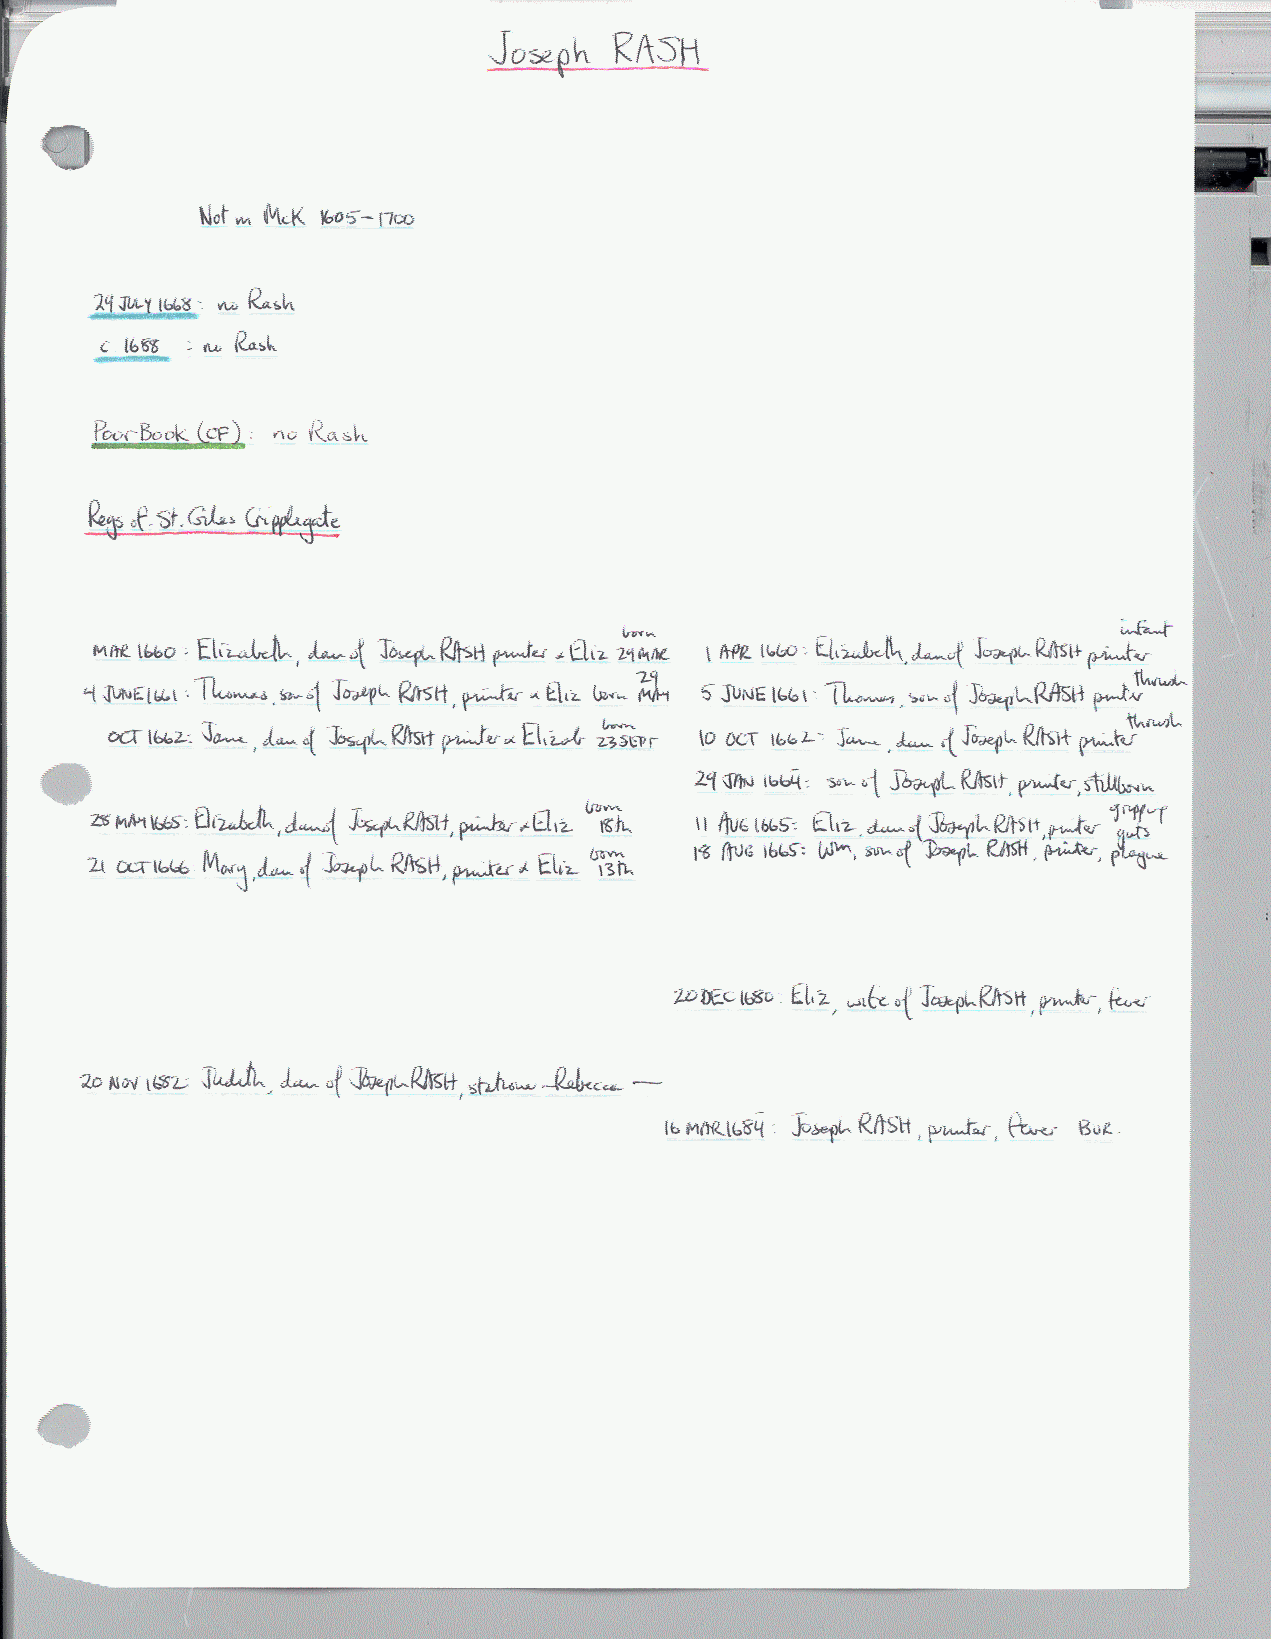 Joseph RASH
Not in McK 1605-1700
29 JULY 1668: no Rash
c 1688 : no Rash
Poor Book (CF): no Rash
Regs of St. Giles Cripplegate
MAR 1660: Elizabeth, dau of Joseph RASH printer & Eliz born 29 MAR
1 APR 1660: Elizabeth, dau of Joseph RASH printer infant
4 JUNE 1661: Thomas, son of Joseph RASH, printer & Eliz born 29 MAY
5 JUNE 1661: Thomas, son of Joseph RASH printer thrush
OCT 1662: Jane, dau of Joseph RASH printer & Elizab born 23 SEPT
10 OCT 1662: Jane, dau of Joseph RASH printer thrush
29 JAN 1664: son of Joseph RASH, printer, stillborn
28 MAY 1665: Elizabeth, dau of Joseph RASH, printer & Eliz born 18th
11 AUG 1665: Eliz, dau of Joseph RASH, printer griping guts
18 AUG 1665: Wm, son of Joseph RASH, printer, plague
21 OCT 1666 Mary, dau of Joseph RASH, printer & Eliz born 13th
20 DEC 1680: Eliz, wife of Joseph RASH, printer, fever
20 NOV 1682: Judith, dau of Joseph RASH, stationer - Rebecca —
16 MAR 1684: Joseph RASH, printer, fever BUR.